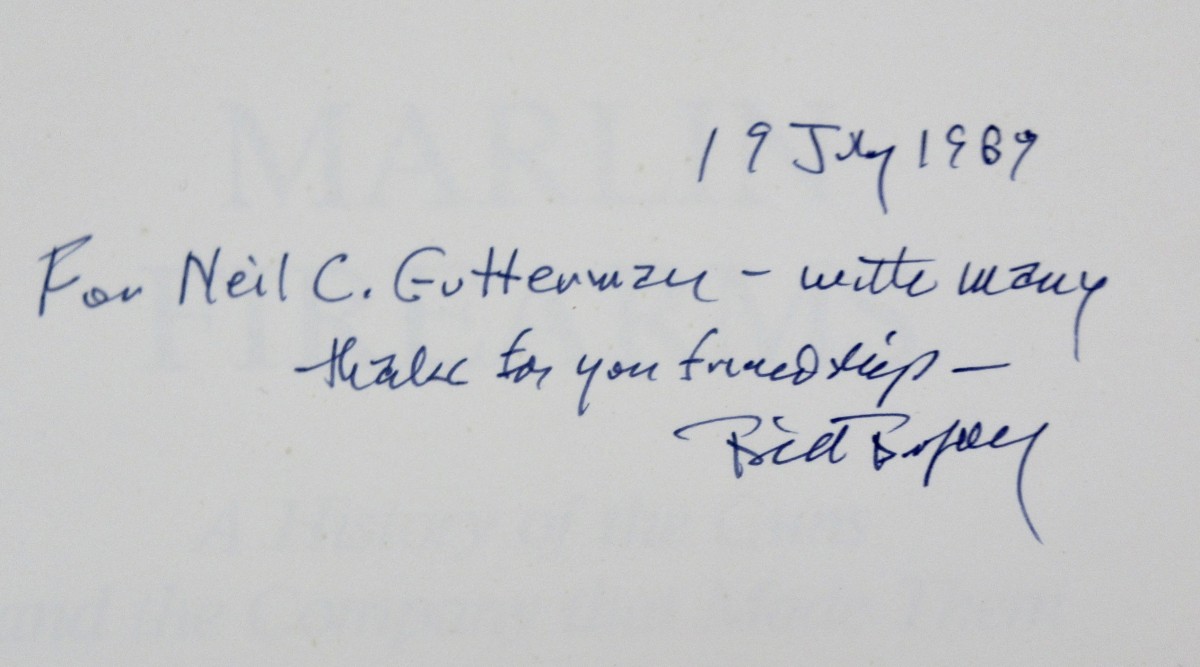 19 July 1989
For Neil C. Gutterman - with many
thanks for your friendship —
Bill Brophy
MARLIN
FIREARMS
A History of the Guns
and the Company that Made Them